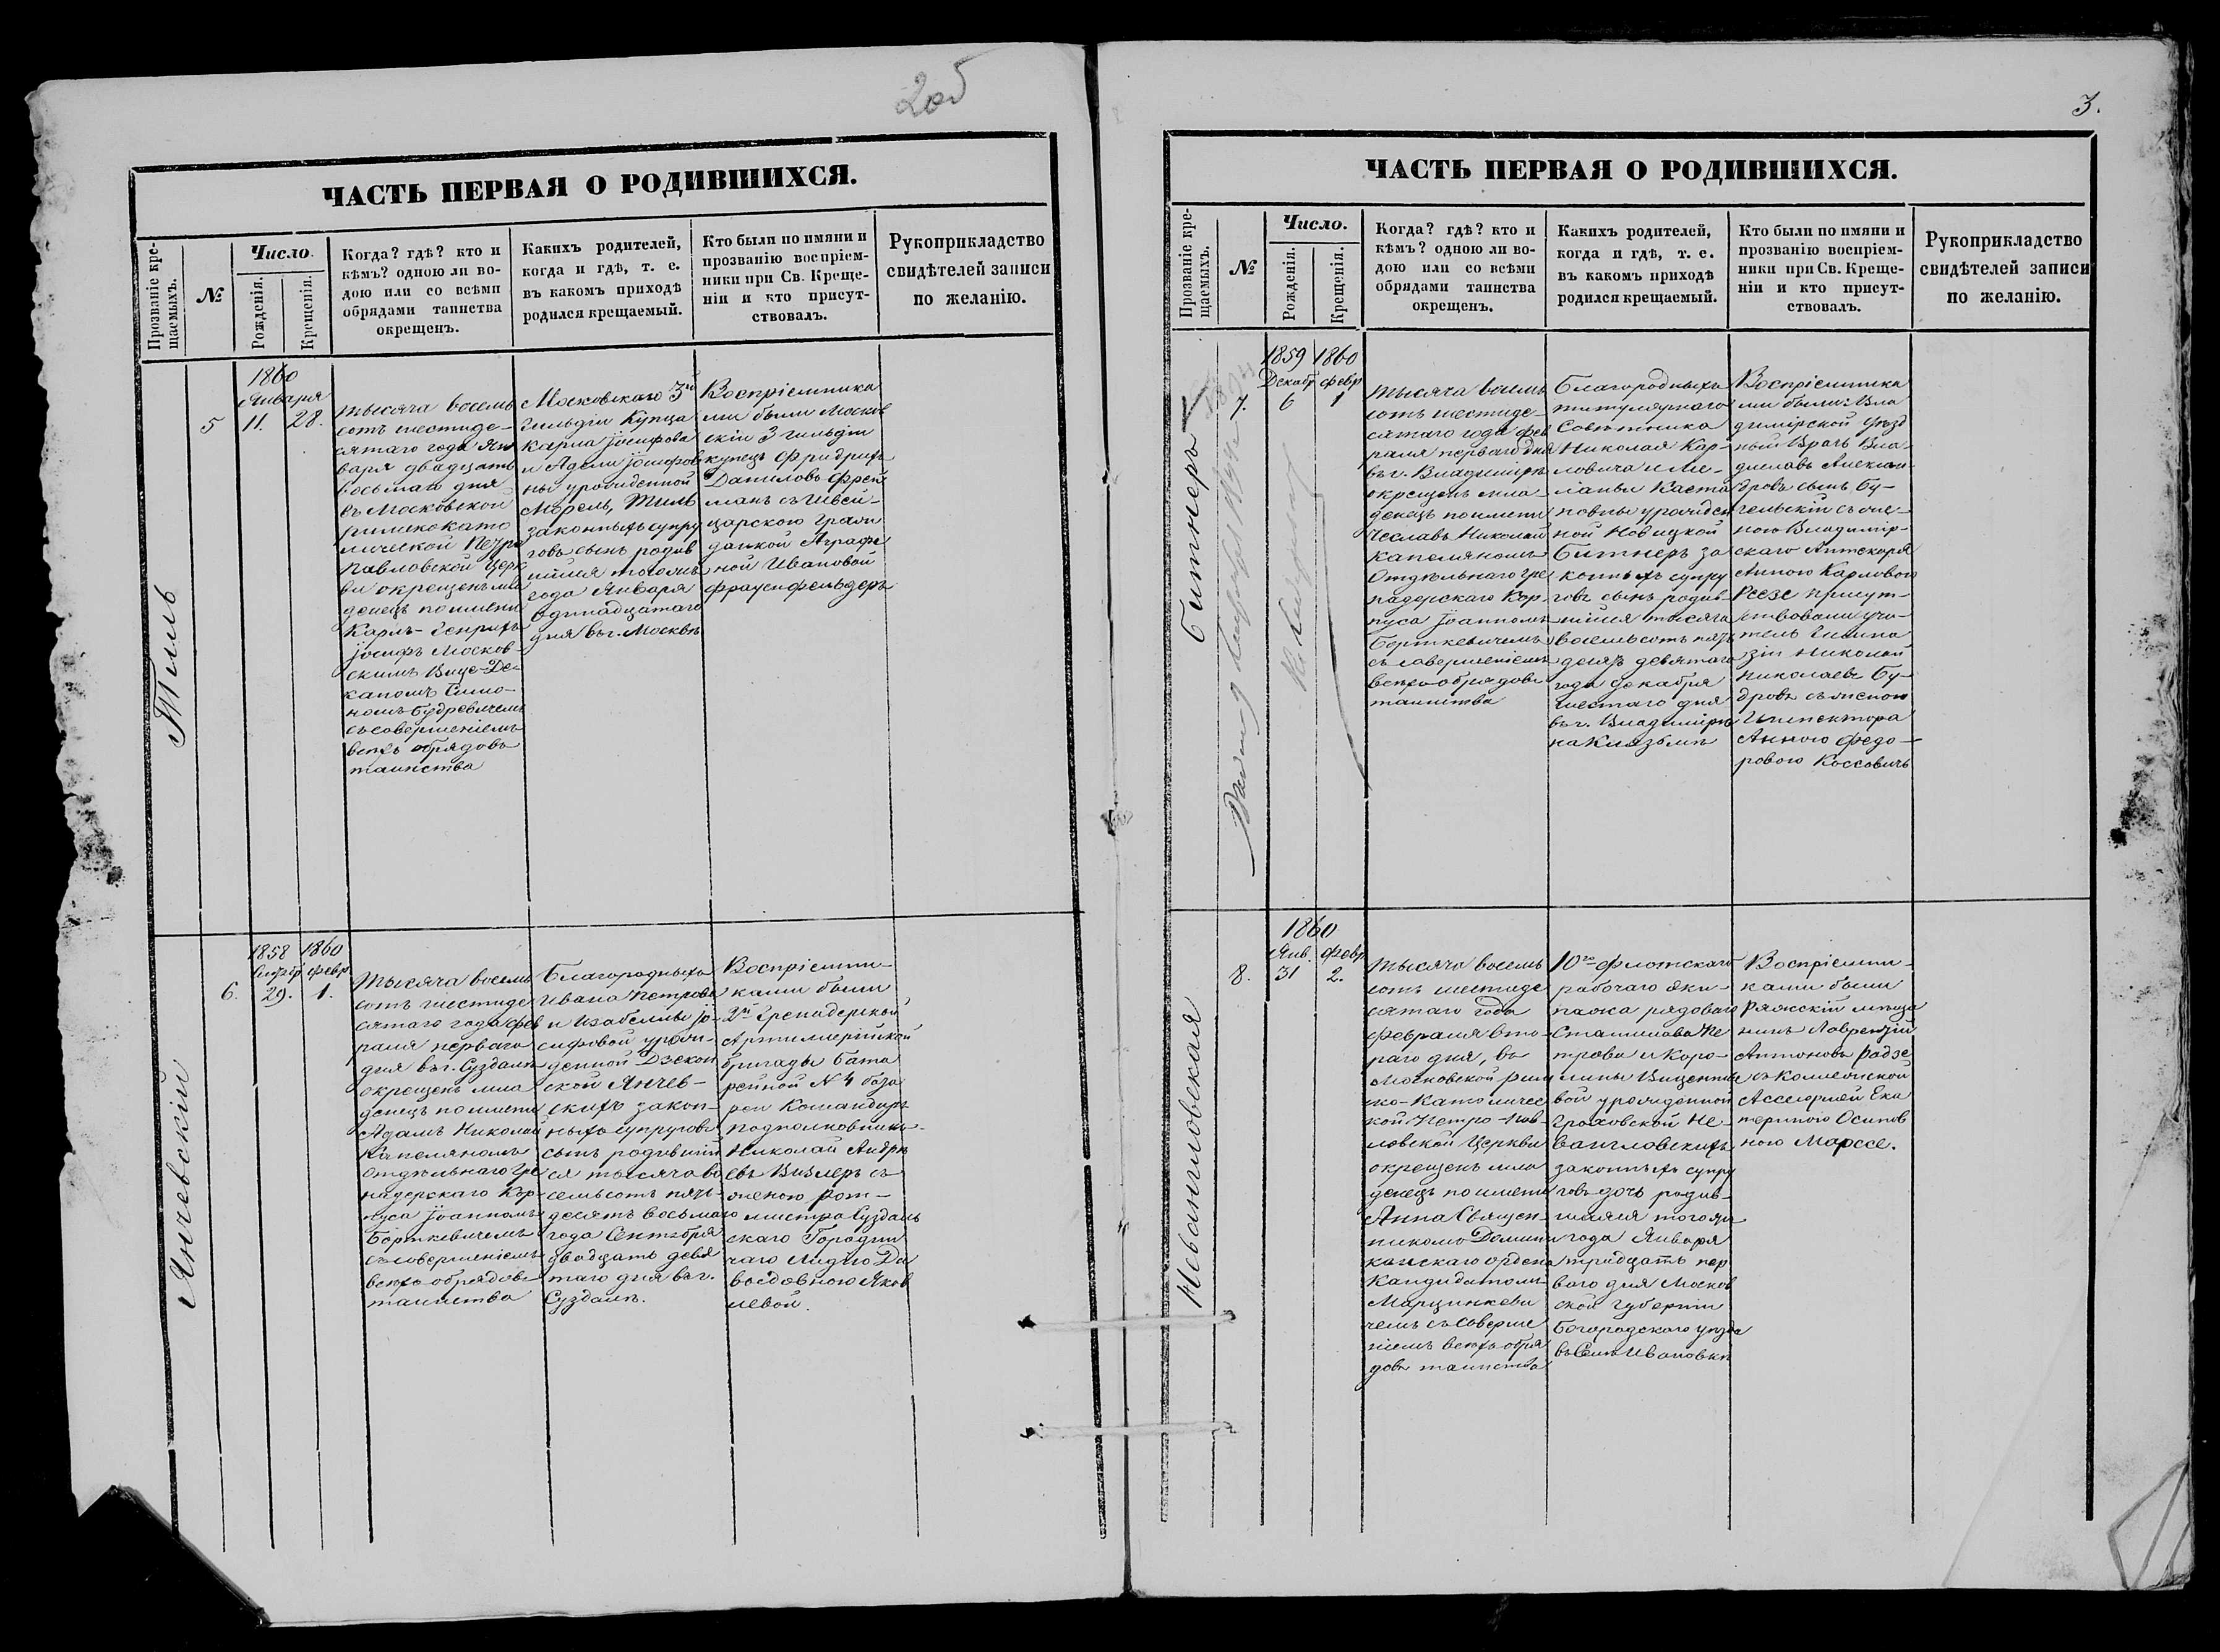 2об
ЧАСТЬ ПЕРВАЯ О РОДИВШИХСЯ.
Прозваніе кре-
щаемыхъ.
№
Число.
Рожденія.
Крещенія.
Когда? гдѣ? кто и
кѣмъ? одною ли во-
дою или со всѣми
обрядами таинства
окрещенъ.
Какихъ родителей,
когда и гдѣ, т. е.
въ какомъ приходѣ
родился крещаемый.
Кто были по имяни и
прозванію воспріем-
ники при Св. Креще-
ніи и кто присут-
ствовалъ.
Рукоприкладство
свидѣтелей записи
по желанію.
Тилль
5
1860
Января
11.
28.
тысяча восемь
сотъ шестиде-
сятаго года Ян
варя двадцать
восьмаго дня
въ Московской
римскокато
лической Петро
павловской церк
ви окрещенъ мла
денецъ по имени
Карлъ-Генрихъ
Іосифъ Москов-
скимъ Вице-Де-
каномъ Симо-
номъ Будревичемъ
съ совершеніемъ
всѣхъ обрядовъ
таинства
Московскаго 3й
Гильдіи Купца
Карла Іосифова
и Адели Іосифов
ны урожденной
Морель, Тилль
законныхъ супру
говъ сынъ родив
шійся тогожъ
года Января
одинадцатаго
дня въ г. Москвѣ
Воспріемника
ми были Москов
скій 3 гильдіи
купецъ Фридрихъ
Даниловъ Фрей
манъ съ Швей-
царскою граж
данкой Аграфе
ной Ивановой
Фрауенфельдеръ
Янчевскій
6.
1858
Сентбр
29.
1860
февр
1.
Тысяча восемь
сотъ шестиде
сятаго года фев
раля перваго
дня въ г. Суздалѣ
окрещенъ мла
денецъ по имени
Адамъ Николай
Капеляномъ
Отдѣльнаго Гре
надерскаго Кор-
пуса Іоанномъ
Борткевичемъ
съ совершеніемъ
всѣхъ обрядовъ
таинства
Благородныхъ
Ивана Петрова
и Изабеллы Іо-
сифовой урож-
денной Дзекон
ской Янчев-
скихъ закон-
ныхъ супруговъ
сынъ родившій
ся тысяча во
семьсотъ пять-
десятъ восьмаго
года Сентября
двадцать девя
таго дня въ г.
Суздалѣ.
Воспріемни-
ками были
2й Гренадерской
Артиллерійской
бригады бата
рейной № 4 бата
реи Командиръ
подполковникъ
Николай Андре
евъ Визлеръ съ
женою рот-
мистра Суздаль
скаго Городни
чаго Лидіею Да
выдовною Яков
левой.
3.
ЧАСТЬ ПЕРВАЯ О РОДИВШИХСЯ.
Прозваніе кре-
щаемыхъ.
№
Число.
Рожденія.
Крещенія.
Когда? гдѣ? кто и
кѣмъ? одною ли во-
дою или со всѣми
обрядами таинства
окрещенъ.
Какихъ родителей,
когда и гдѣ, т. е.
въ какомъ приходѣ
родился крещаемый.
Кто были по имяни и
прозванію воспріем-
ники при Св. Креще-
ніи и кто присут-
ствовалъ.
Рукоприкладство
свидѣтелей записи
по желанію.
Битнеръ
7.
1859
Декабр
6
1860
февр
1
тысяча восемь
сотъ шестиде-
сятаго года фев
раля перваго дня
въ г. Владимірѣ
окрещенъ мла-
денецъ по имени
Чеславъ Николай
Капеляномъ
Отдѣльнаго Гре
надерскаго Кор-
пуса Іоанномъ
Борткевичемъ
съ совершеніемъ
всѣхъ обрядовъ
таинства
Благородныхъ
титулярнаго
Совѣтника
Николая Кар-
ловича и Ме-
ланьи Каета
новны урожден
ной Новицкой
Битнеръ за
конныхъ супру
говъ сынъ родив-
шійся тысяча
восемьсотъ пять
десятъ девятаго
года декабря
шестаго дня
въ г. Владимірѣ
на Клязьмѣ
Воспріемника
ми были: Вла
димірской уѣзд
ный Врачъ Вла-
диславъ Алексан
дровъ сынъ Бу-
гельскій съ же-
ною Владимір-
скаго Аптекаря
Анною Карловою
Реезе присут-
ствовали учи-
тель Гимна
зіи Николай
Николаевъ Бу-
дровъ съ женою
Инспектора
Анною Федо-
ровою Коссовичъ
Невангловская
8.
1860
Янв.
31
Февр
2.
тысяча восемь
сотъ шестиде
сятаго года
февраля вто-
раго дня, въ
Московской рим
ско-Католичес
кой Петро-Пав-
ловской Церкви
окрещенъ мла
денецъ по имени
Анна Священ-
никомъ Домини
канскаго ордена
Кандидатомъ
Марцинкеви
чемъ съ соверше
ніемъ всѣхъ обря
довъ таинства
10го флотскаго
рабочаго эки-
пажа рядоваго
Станислава Пе
трова и Каро-
лины Виценть
вой урожденной
Гроховской Не-
вангловскихъ
законныхъ супру
говъ дочь родив-
шаяся тогожъ
года Января
тридцать пер
ваго дня Москов
ской губерніи
Богородскаго уѣзда
въ Селѣ Ивановкѣ
Воспріемни-
ками были
Ряжскій мѣща
нинъ Лаврентій
Антоновъ Радзе
съ Коллежской
Ассесоршей Ека
териною Осипов
ною Марссе.